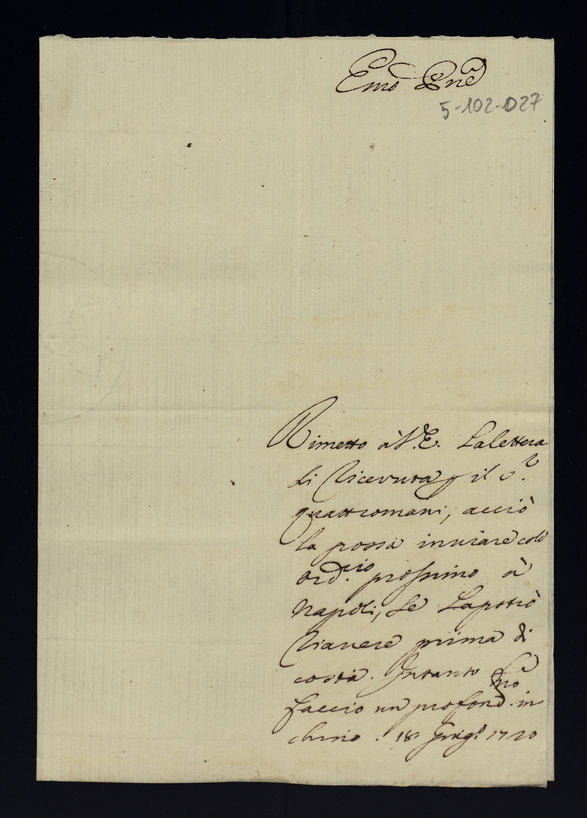 Emo Pne
5-102-027
Rimetto à V. E. La lettera
di Ricevuta p il S.r
quattromani, acciò
la possa inviare coll
ord.rio prossimo à
Napoli, se La potrò
riavere prima di
costà. Intanto
faccio un profond.mo in
chino. 18 Giug.o 1720